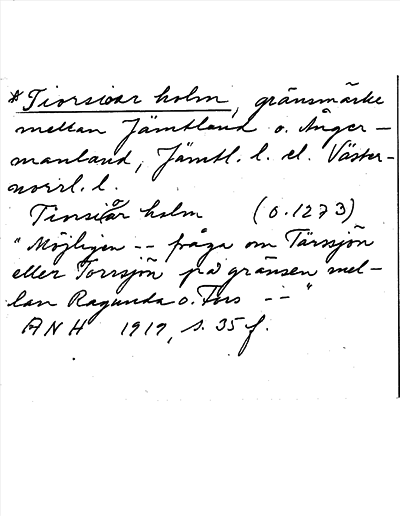 * Tiorsioar holm, gränsmärke
mellan Jämtland o. Ånger-
manland, Jämtl. l. el. Väster-
norrl. l.
Tiorsioar holm (o. 1273)
"Möjligen -- fråga om Tärssjön
eller Torrsjön på gränsen mel-
lan Ragunda o. Fors --"
ANH 1919, s. 35 f.